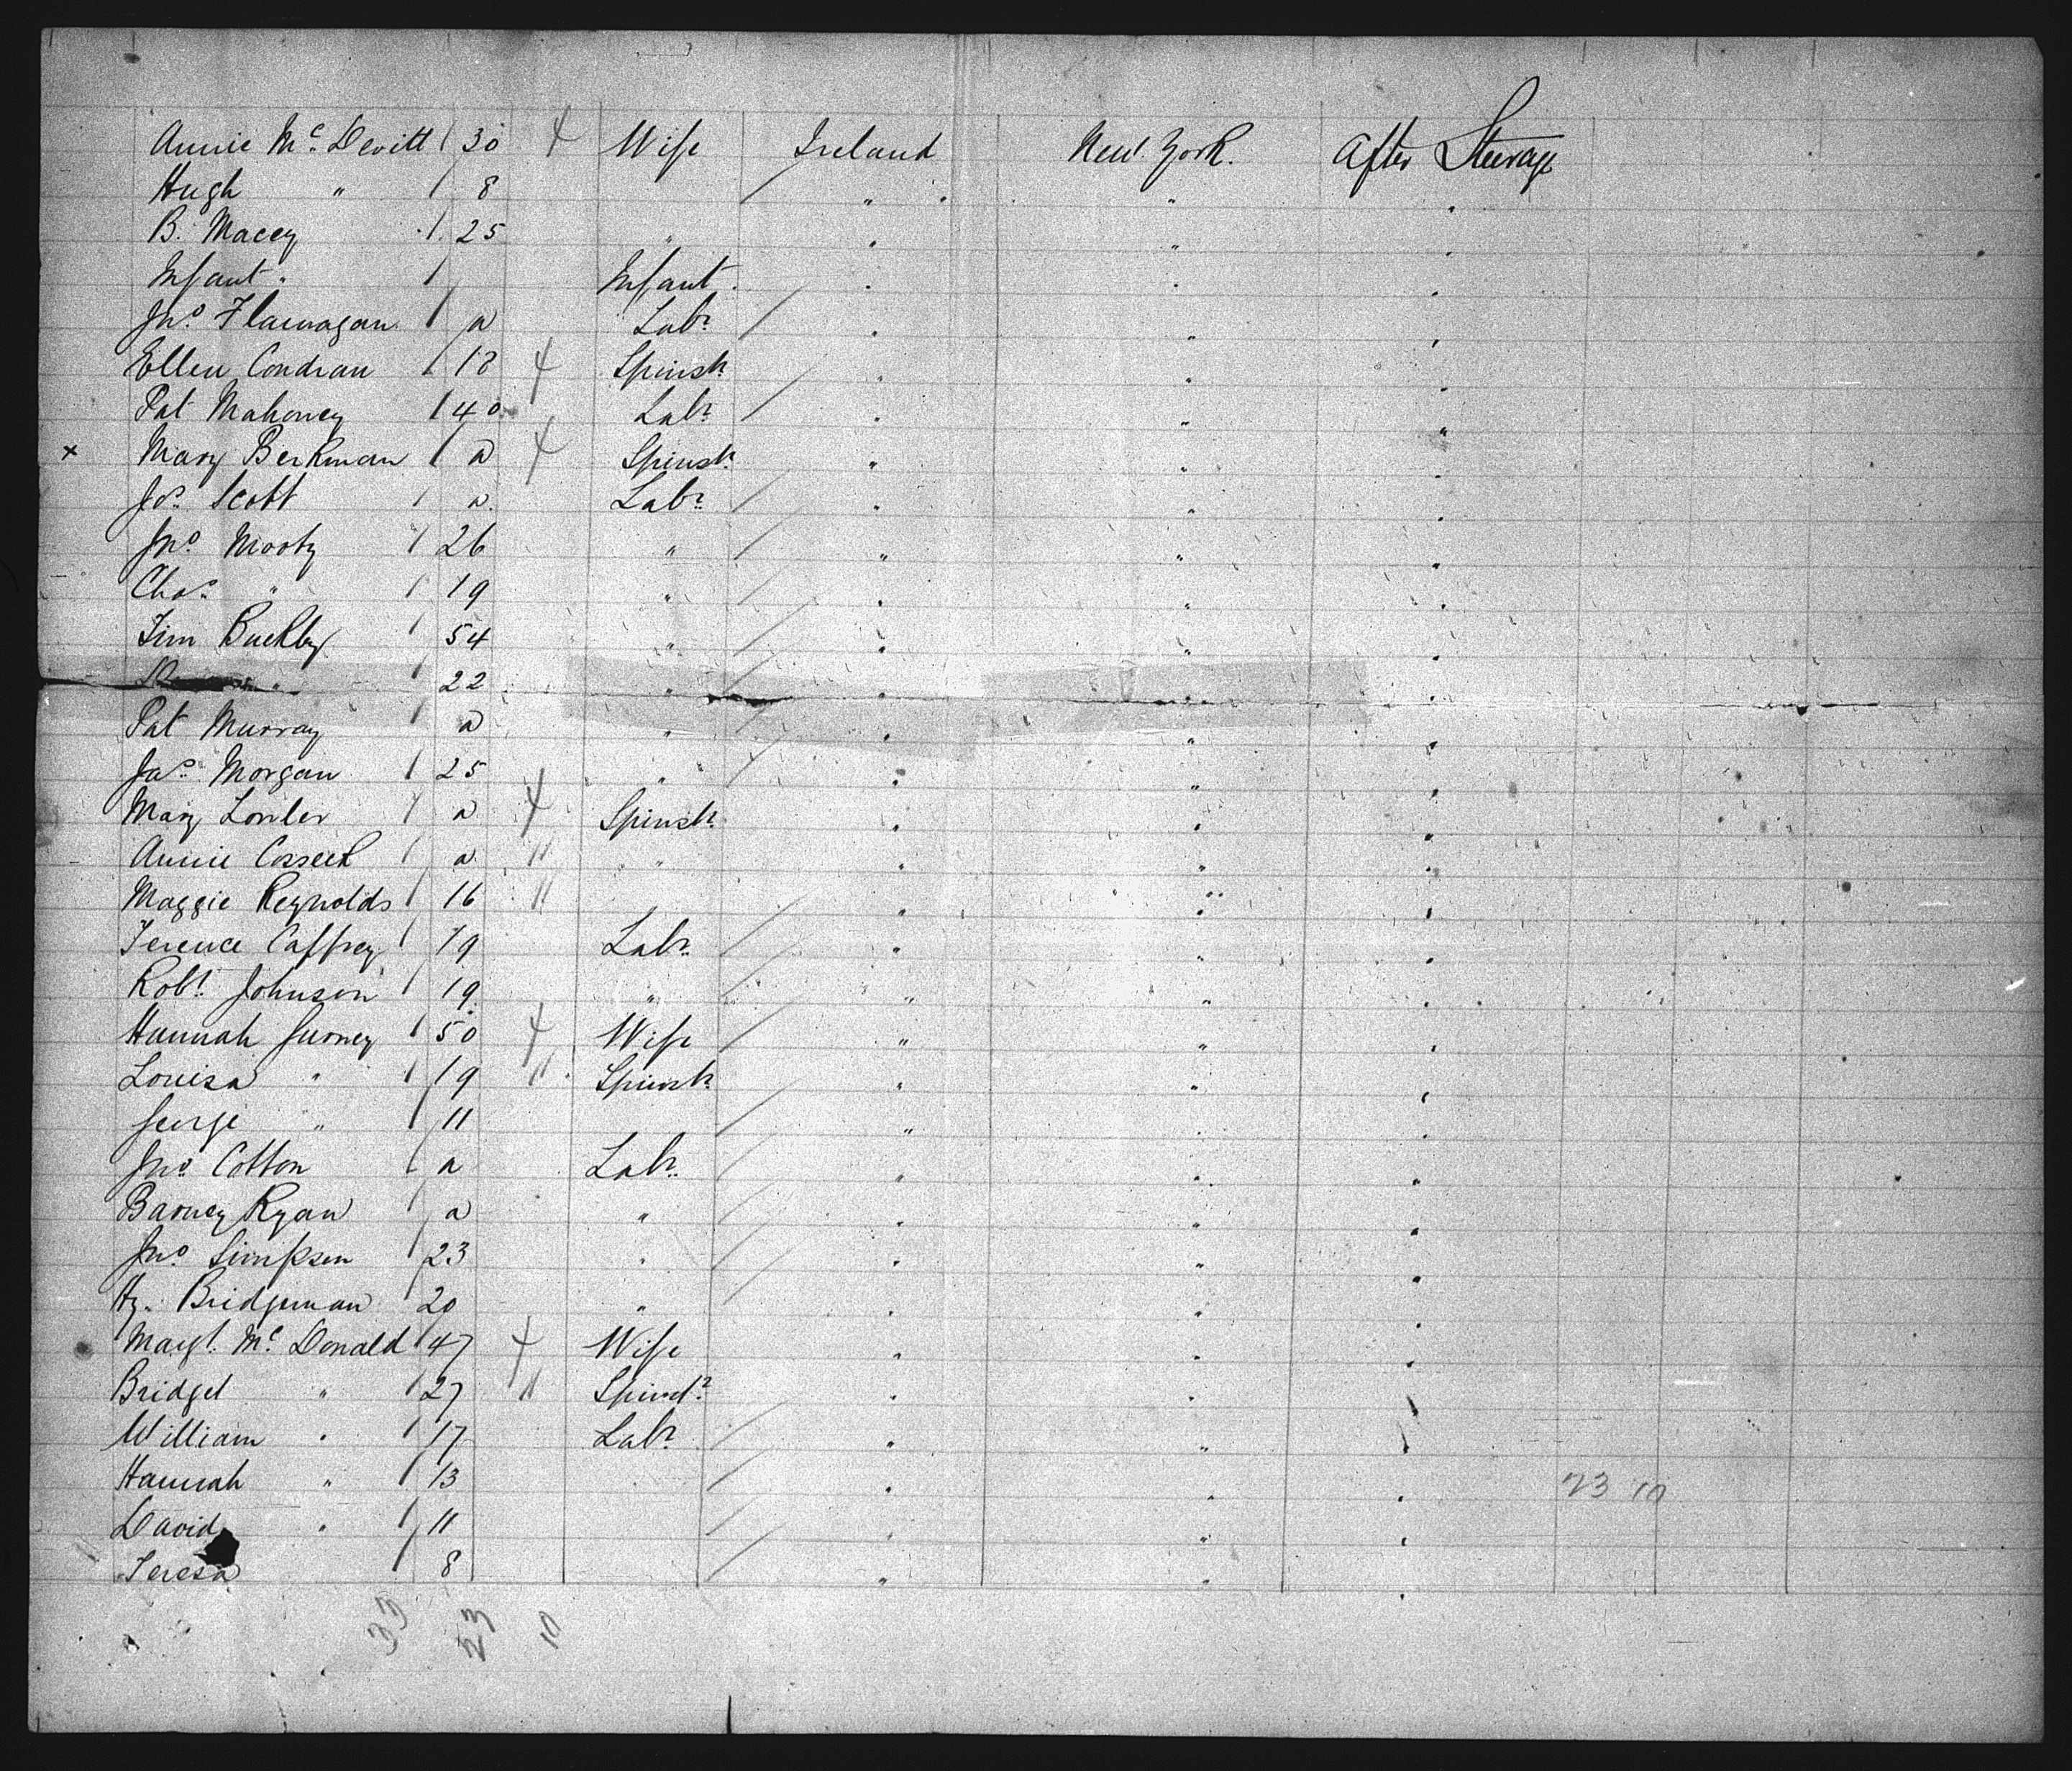 Annie Mc Devitt / 30 4 Wife Ireland New York. After Steerage
Hugh " / 8 " " "
B. Macey / 25 " " " "
Infant " / Infant " " "
Jno. Flannagan / a Labr. " " "
Ellen Condran / 18 4 Spinstr. " " "
Pat Mahoney / 40 Labr. " " "
x Mary Berkman / a 4 Spinstr. " " "
Jos. Scott / a. Labr. " " "
Jno. Mooty / 26 " " " "
Chas. " / 19 " " " "
Tim Buckley / 54 " " " "
" / 22 " " " "
Pat Murray / a " " " "
Jas. Morgan / 25 " " " "
Mary Lonler / a 4 Spinstr. " " "
Annie / a 11 " " " "
Maggie Reynolds / 16 11 " " "
Terence Caffrey / 19 Labr. " " "
Robt. Johnson / 19 " " " "
Hannah Gurney / 50 4 Wife " " "
Louisa " / 19 11 Spinstr. " " "
George " / 11 " " "
Jno. Cotton / a Labr. " " "
Barney Ryan / a " " " "
Jno. Simpson / 23 " " " "
Hy. Bridgeman 20 " " " "
Margt. Mc Donald / 47 4 Wife " " "
Bridget " / 27 11 Spinstr. " " "
William " / 17 Labr. " " "
Hannah " / 13 " " " 23 10
David " / 11 " " "
Teresa / 8 " " "
33 23 10